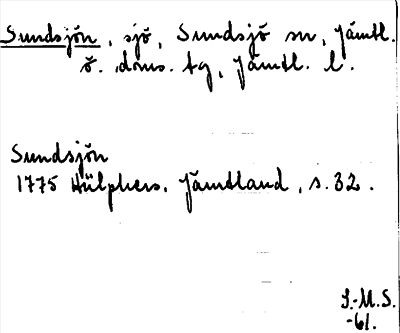 Sundsjön, sjö, Sundsjö sn, Jämtl.
ö. doms. tg, Jämtl. l.
Sundsjön
1775 Hülphers. Jämtland, s. 32.
S.-M.S.
-61.